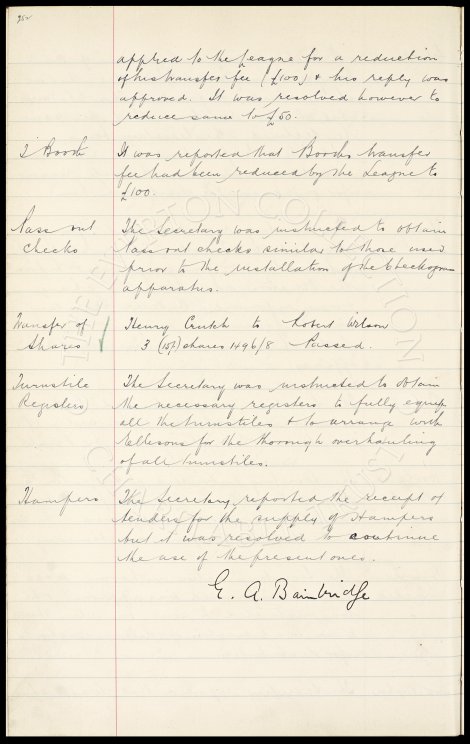 applied to the League for a reduction
of his transfer fee (£100) & his reply was
approved. It was resolved however to
reduce same to £50.
T Booth It was reported that Booths transfer
fee had been reduced by the League to
£100.
Pass out The Secretary was instructed to obtain
Checks Pass out checks similar to those used
prior to the installation of the Checkograms
apparatus.
Transfer of Henry Crutch to Robert Wilson
Shares 3 (10/-) shares 1496/8 Passed.
Turnstile The Secretary was instructed to obtain
Registers the necessary registers to fully equip
all the turnstiles & to arrange with
for the thorough overhauling
of all turnstiles.
Hampers The Secretary reported the receipt of
tenders for the supply of Hampers
but it was resolved to continue
the use of the present ones.
E. A. Bainbridge
THE EVERTON COLLECTION